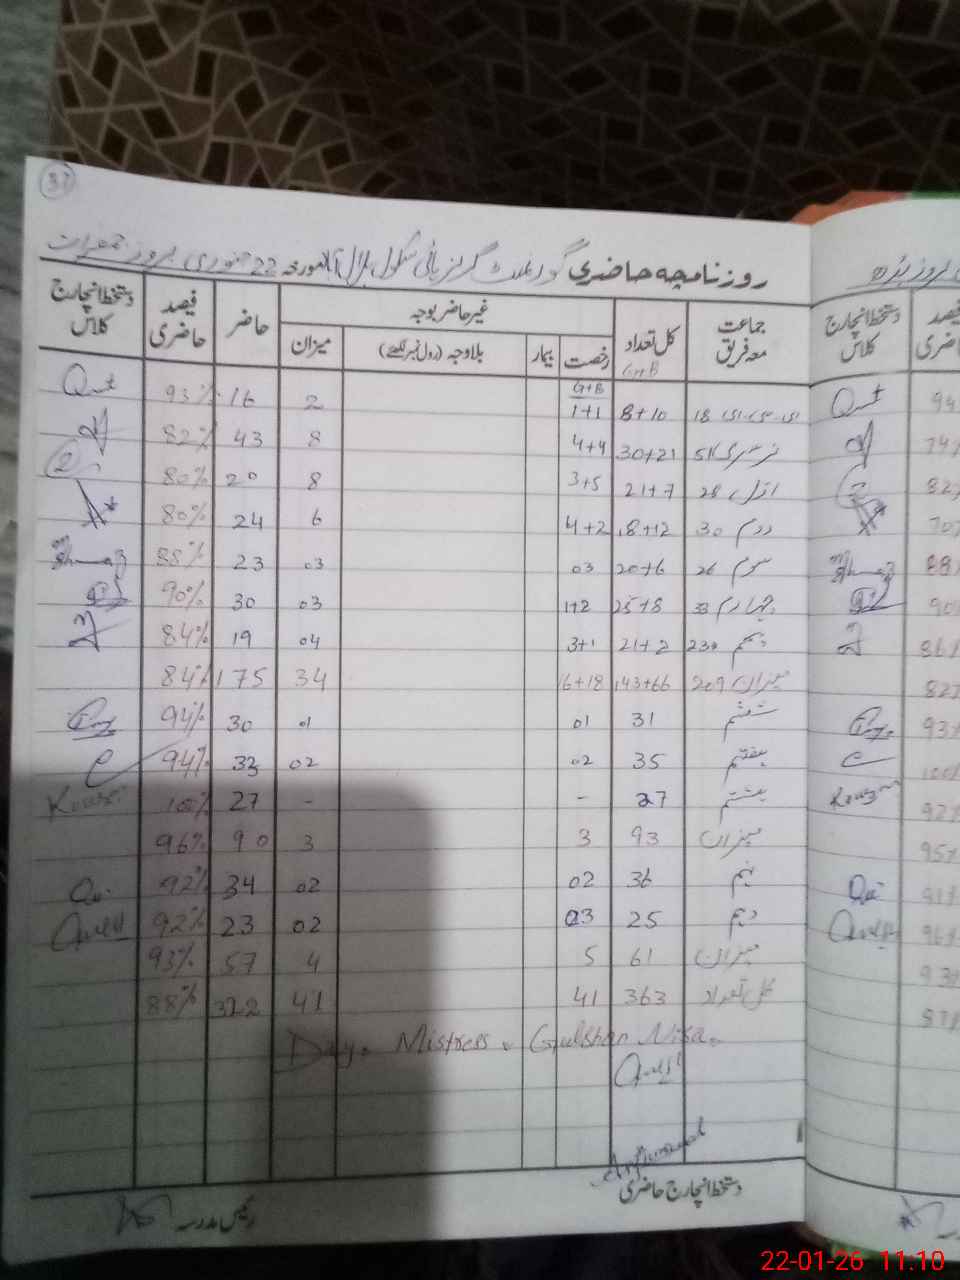 37
روزنامچہ حاضری گورنمنٹ گرلز ہائی سکول بلال آباد مورخہ 22 جنوری بروز جمعرات
جماعت معہ فریق کل تعداد G+B غیر حاضر بوجہ حاضر فیصد حاضری دستخط انچارج کلاس
رخصت بیمار بلاوجہ (رول نمبر لکھئے) میزان
G+B
ای سی ای 18 8+10 1+1 2 16 93%
نرسری 51 30+21 4+4 8 43 82%
اول 28 21+7 3+5 8 20 80%
دوم 30 18+12 4+2 6 24 80%
سوم 26 20+6 03 03 23 88%
چہارم 33 25+8 1+2 03 30 90%
پنجم 23 21+2 3+1 04 19 84%
میزان 209 143+66 16+18 34 175 84%
ششم 31 01 01 30 94%
ہفتم 35 02 02 33 94%
ہشتم 27 - - 27 100% Kousar
میزان 93 3 3 90 96%
نہم 36 02 02 34 92%
دہم 25 03 02 23 92%
میزان 61 5 4 57 93%
کل تعداد 363 41 41 322 88%
Day. Mistress. Gulshan Nisa.
دستخط انچارج حاضری
رئیس مدرسہ
بروز بدھ
فیصد حاضری دستخط انچارج کلاس
94
74%
82%
70%
88%
90%
86%
82%
93%
100%
Kousar 92%
95%
91%
96%
93%
87%
22-01-26 11:10